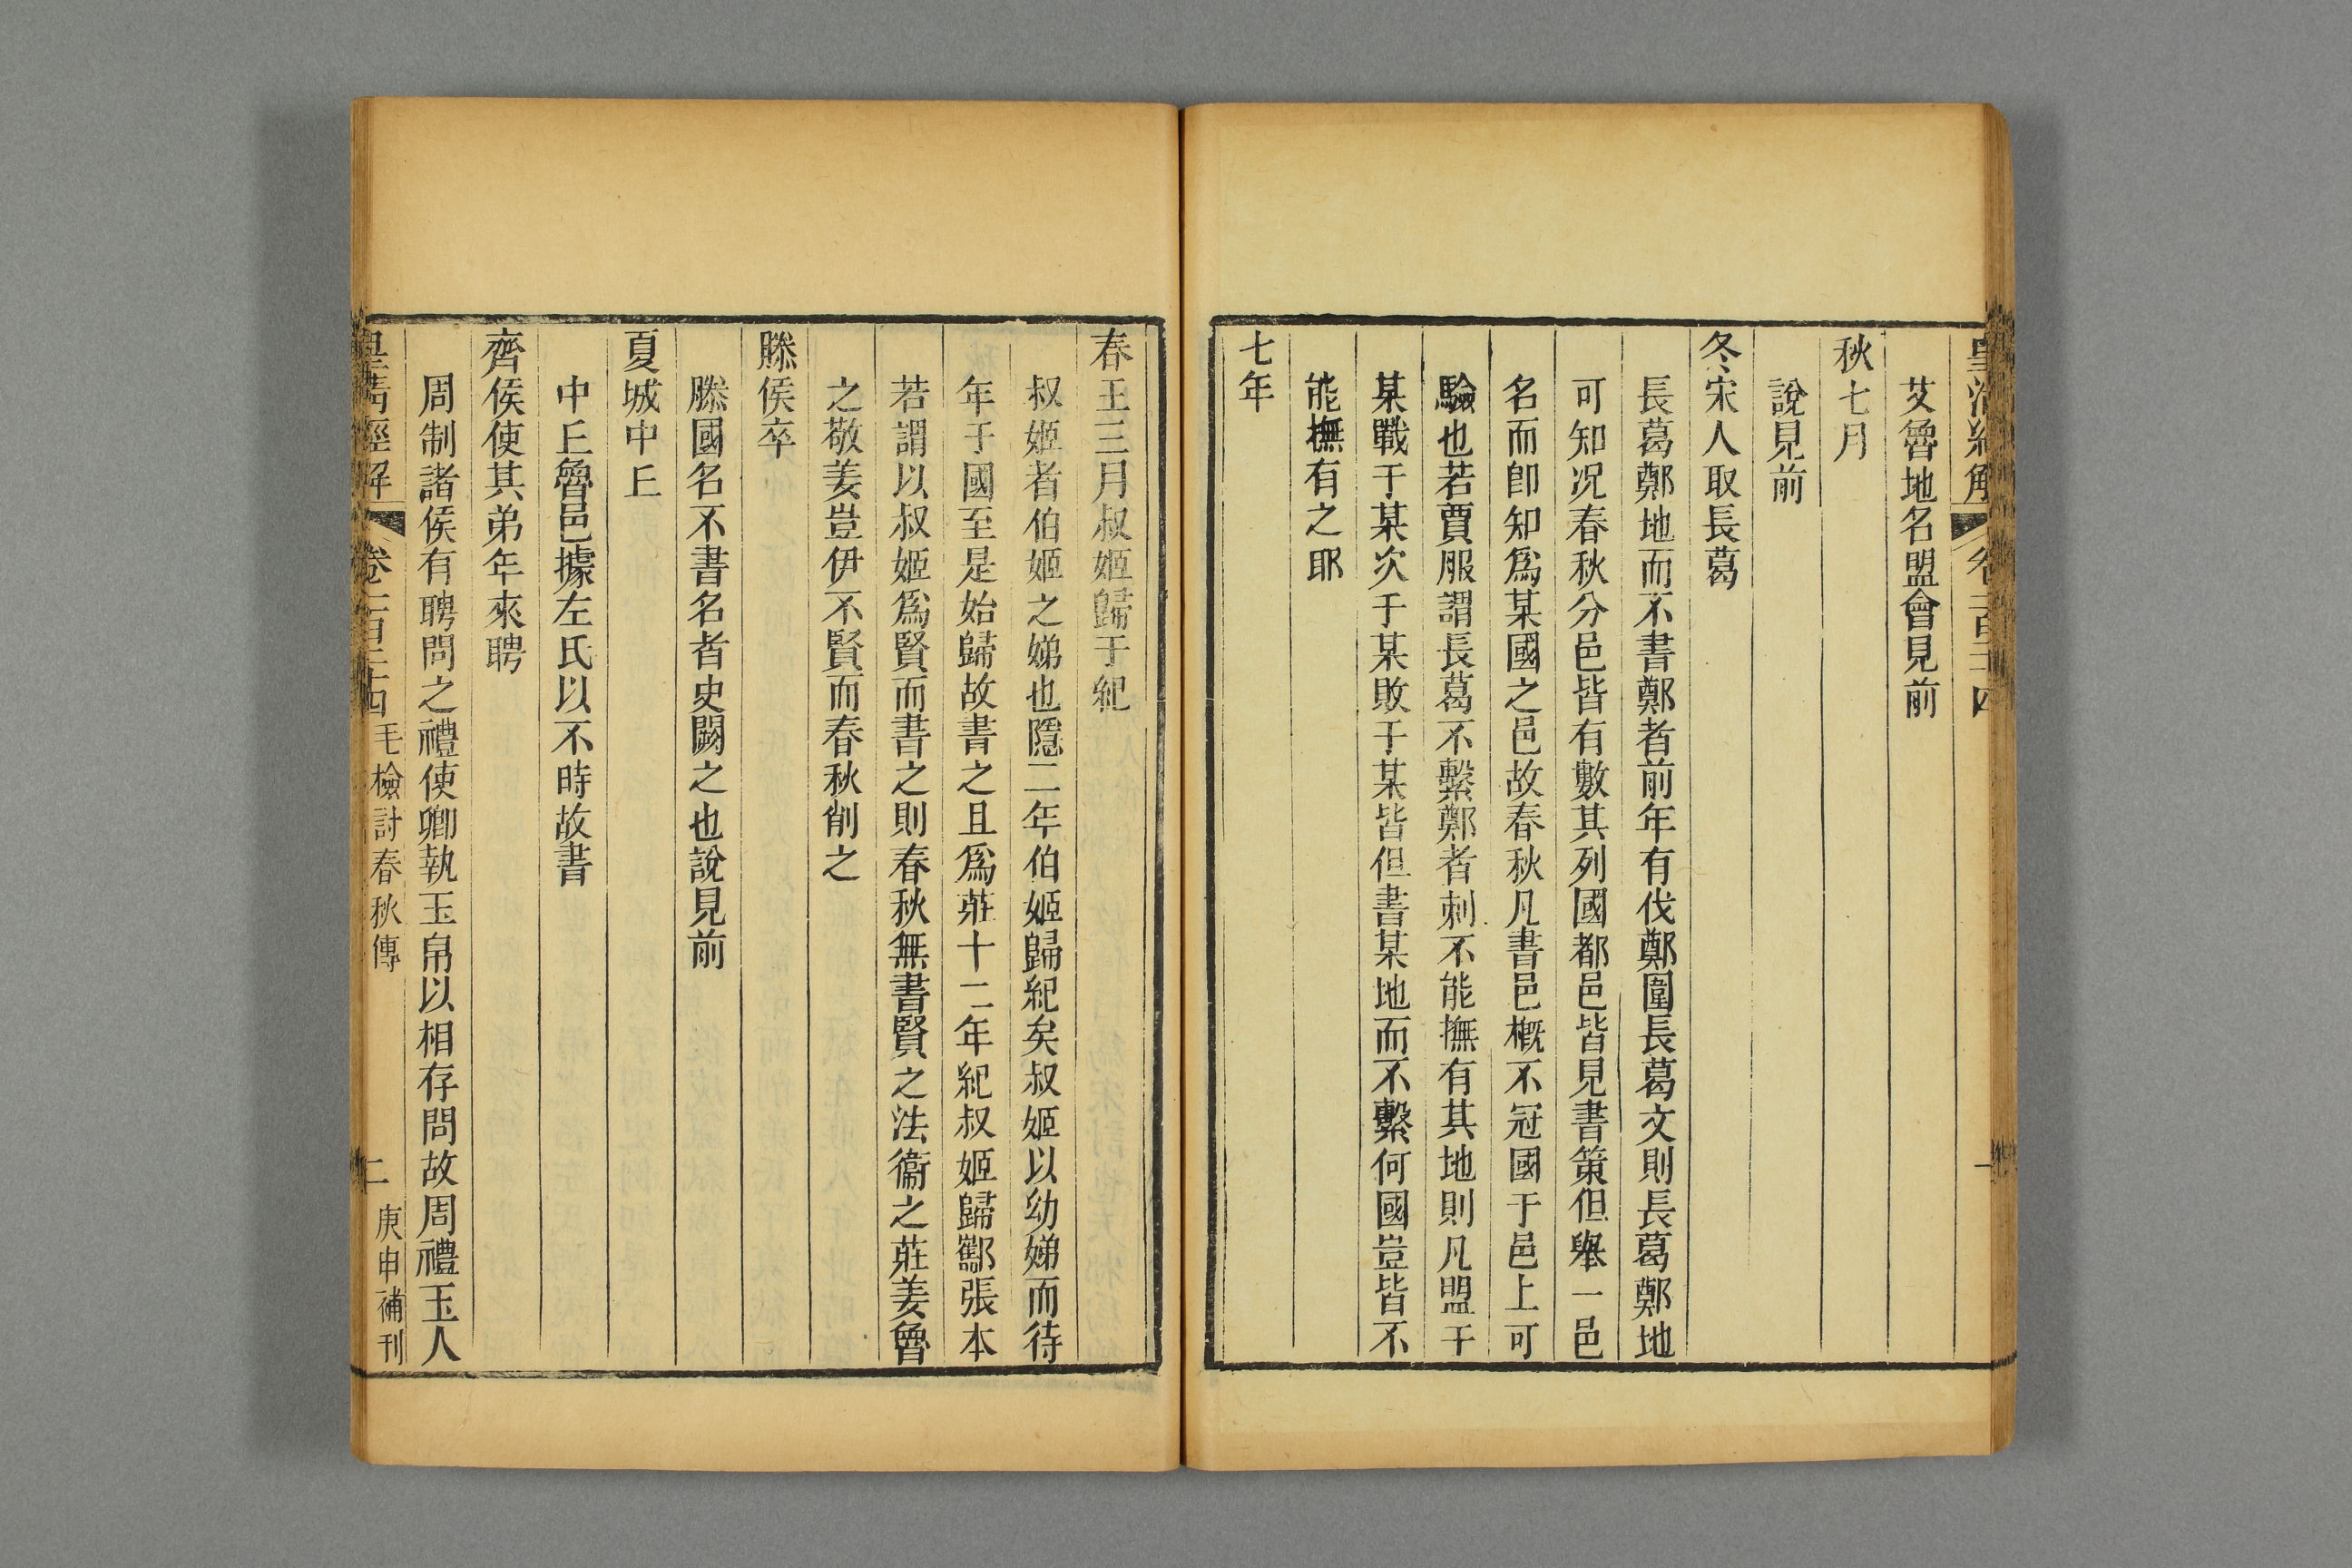 艾魯地名盟會見前
秋七月
說見前
冬宋人取長葛
長葛鄭地而不書鄭者前年有伐鄭圍長葛文則長葛鄭地
可知况春秋分邑皆有數其列國都邑皆見書策但舉一邑
名而卽知爲某國之邑故春秋凡書邑槪不冠國于邑上可
驗也若賈服謂長葛不繫鄭者刺不能撫有其地則凡盟于
某戰于某次于某敗于某皆但書某地而不繫何國豈皆不
能撫有之耶
七年
春王三月叔姬歸于紀
叔姬者伯姬之娣也隱二年伯姬歸紀矣叔姬以幼娣而待
年于國至是始歸故書之且爲莊十二年紀叔姬歸酅張本
若謂以叔姬爲賢而書之則春秋無書賢之法衞之莊姜魯
之敬姜豈伊不賢而春秋削之
滕侯卒
滕國名不書名者史闕之也說見前
夏城中丘
中丘魯邑據左氏以不時故書
齊侯使其弟年來聘
周制諸侯有聘問之禮使卿執玉帛以相存問故周禮玉人
皇淸經解 卷一百二十四 毛檢討春秋傳 二 庚申補刊